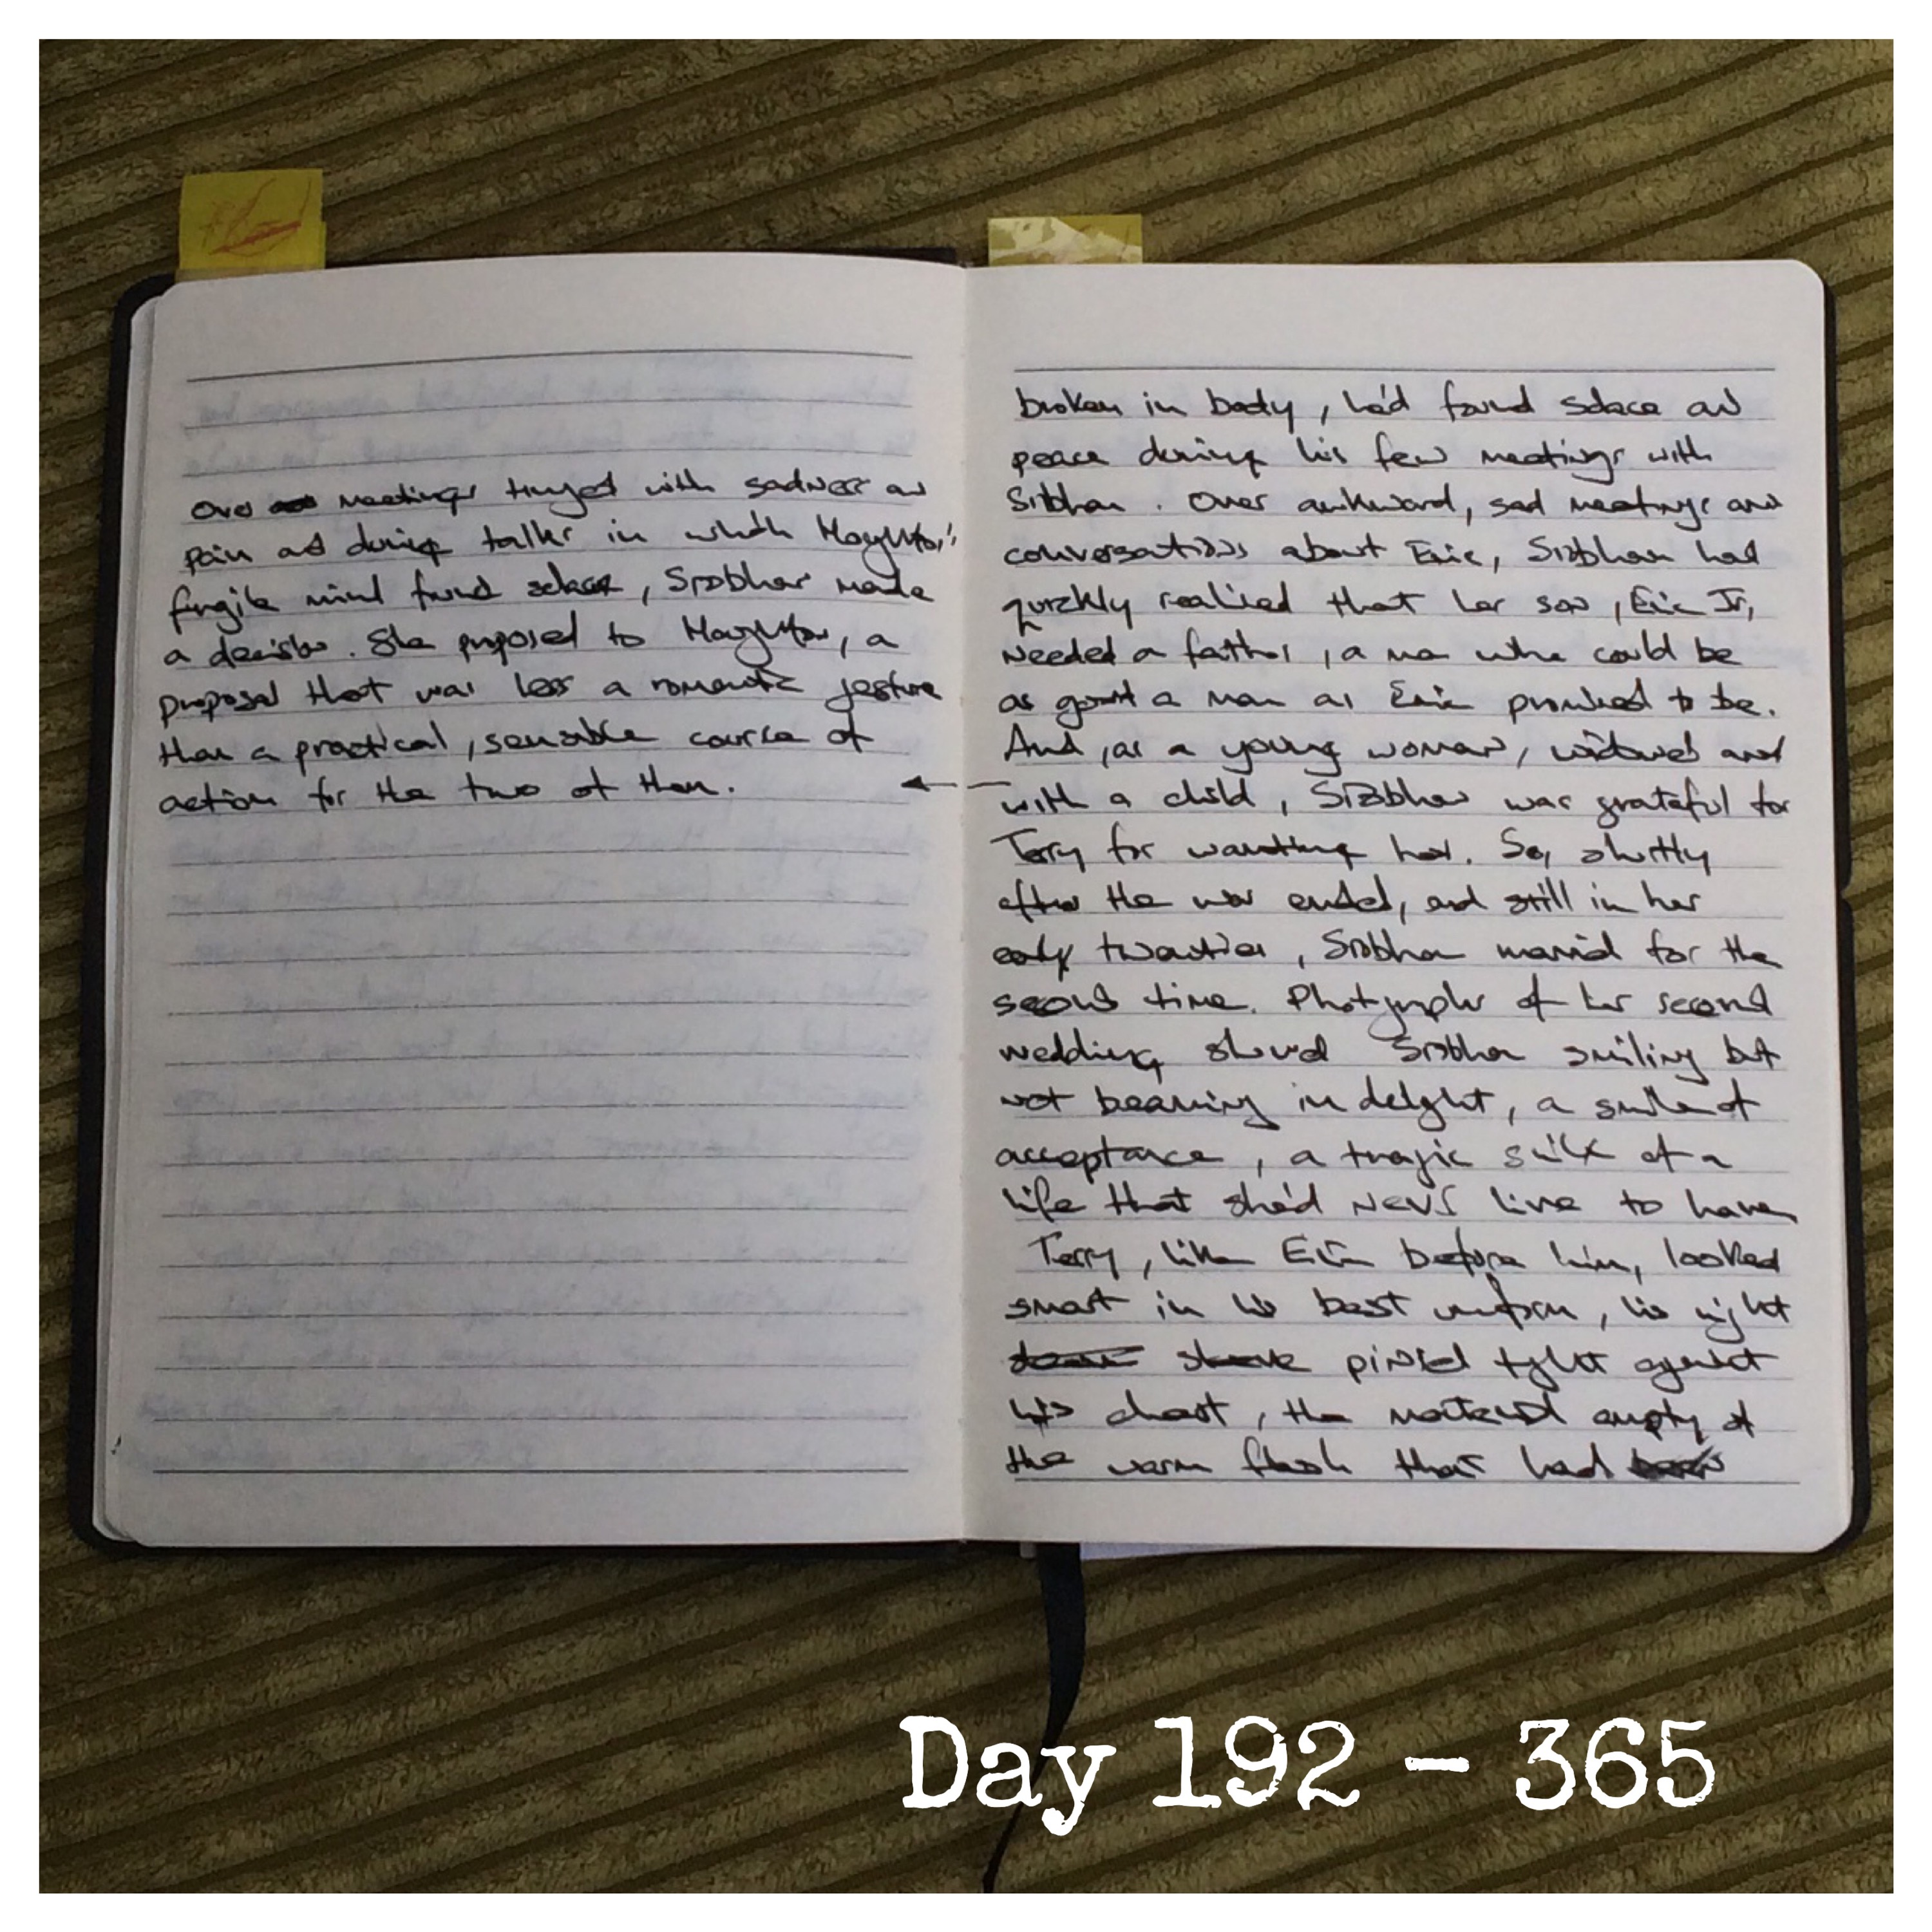 over meetings tinged with sadness and
pain and during talks in which Houghton's
fragile mind found solace, Siobhan made
a decision. She proposed to Houghton, a
proposal that was less a romantic gesture
than a practical, sensible course of
action for the two of them.
broken in body, he'd found solace and
peace during his few meetings with
Siobhan. Over awkward, sad meetings and
conversations about Eric, Siobhan had
quickly realised that her son, Eric Jr,
needed a father, a man who could be
as good a man as Eric promised to be.
And, as a young woman, widowed and
with a child, Siobhan was grateful for
Terry for wanting her. So, shortly
after the war ended, and still in her
early twenties, Siobhan married for the
second time. Photographs of her second
wedding showed Siobhan smiling but
not beaming in delight, a smile of
acceptance, a tragic smile of a
life that she'd never live to have
Terry, like Eric before him, looked
smart in his best uniform, his right
sleeve pinned tight against
his chest, the material empty of
the warm flesh that had
Day 192 - 365